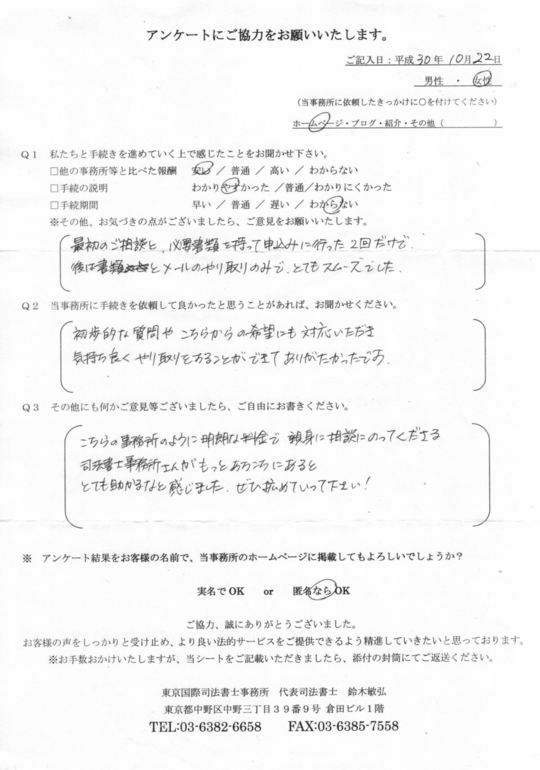 アンケートにご協力をお願いいたします。
ご記入日：平成30年10月22日
男性 ・ 女性
(当事務所に依頼したきっかけに○を付けてください)
ホームページ・ブログ・紹介・その他（　　　　）
Q1 私たちと手続きを進めていく上で感じたことをお聞かせ下さい。
□他の事務所等と比べた報酬 安い ／ 普通 ／ 高い ／ わからない
□手続の説明 わかりやすかった ／普通／わかりにくかった
□手続期間 早い ／ 普通 ／ 遅い ／ わからない
※その他、お気づきの点がございましたら、ご意見をお願いいたします。
最初のご相談と、必要書類を持って申込みに行った2回だけで、
後は書類とメールのやり取りのみで、とてもスムーズでした。
Q2 当事務所に手続きを依頼して良かったと思うことがあれば、お聞かせください。
初歩的な質問や こちらからの希望にも対応いただき
気持ち良く やり取りをすることができて ありがたかったです。
Q3 その他にも何かご意見等ございましたら、ご自由にお書きください。
こちらの事務所のように 明朗な料金で 親身に相談にのってくださる
司法書士事務所さんが もっと あちこちにあると
とても助かるなと感じました。ぜひ拡めていって下さい！
※ アンケート結果をお客様の名前で、当事務所のホームページに掲載してもよろしいでしょうか？
実名でOK or 匿名ならOK
ご協力、誠にありがとうございました。
お客様の声をしっかりと受け止め、より良い法的サービスをご提供できるよう精進していきたいと思っております。
※お手数おかけいたしますが、当シートをご記載いただきましたら、添付の封筒にてご返送ください。
東京国際司法書士事務所 代表司法書士 鈴木敏弘
東京都中野区中野三丁目39番9号 倉田ビル1階
TEL:03-6382-6658 FAX:03-6385-7558